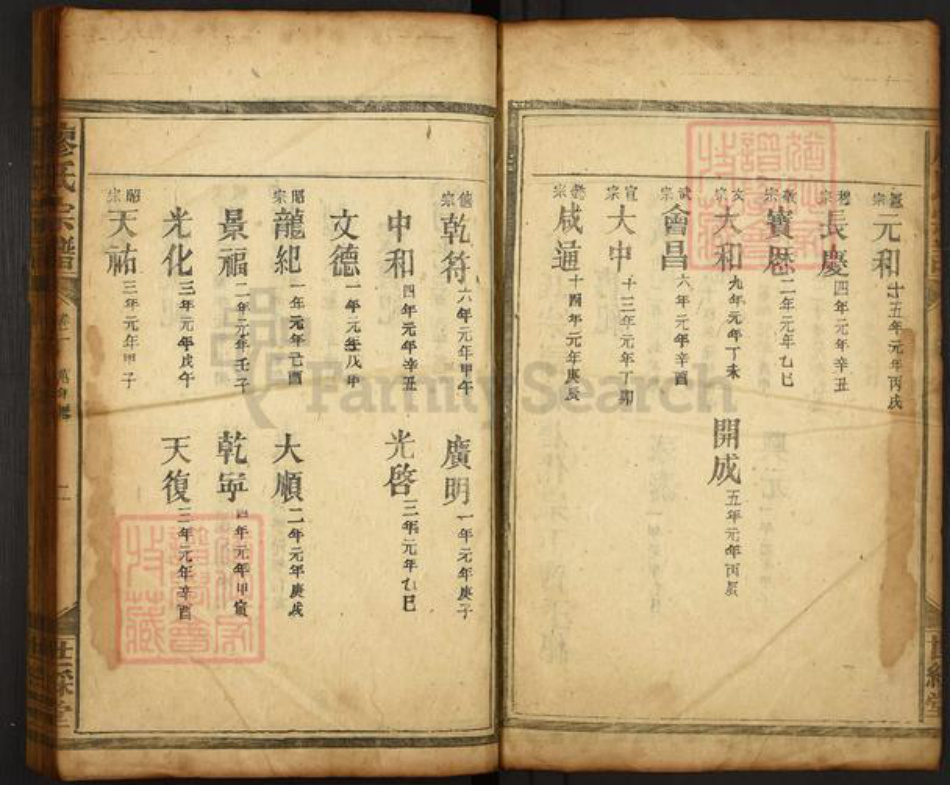 憲宗 元和 十五年元年丙戌
穆宗 長慶 四年元年辛丑
敬宗 寳歷 二年元年乙巳
文宗 大和 九年元年丁未
開成 五年元年丙辰
武宗 會昌 六年元年辛酉
宣宗 大中 十三年元年丁卯
懿宗 咸通 十四年元年庚辰
僖宗 乾符 六年元年甲午
廣明 一年元年庚子
中和 四年元年辛丑
光啓 三年元年乙巳
文德 一年元年戊申
昭宗 龍紀 一年元年己酉
大順 二年元年庚戌
景福 二年元年壬子
乾寧 四年元年甲寅
光化 三年元年戊午
天復 三年元年辛酉
昭宗 天祐 三年元年甲子
廖氏宗譜
卷一
二
世綵堂
FamilySearch